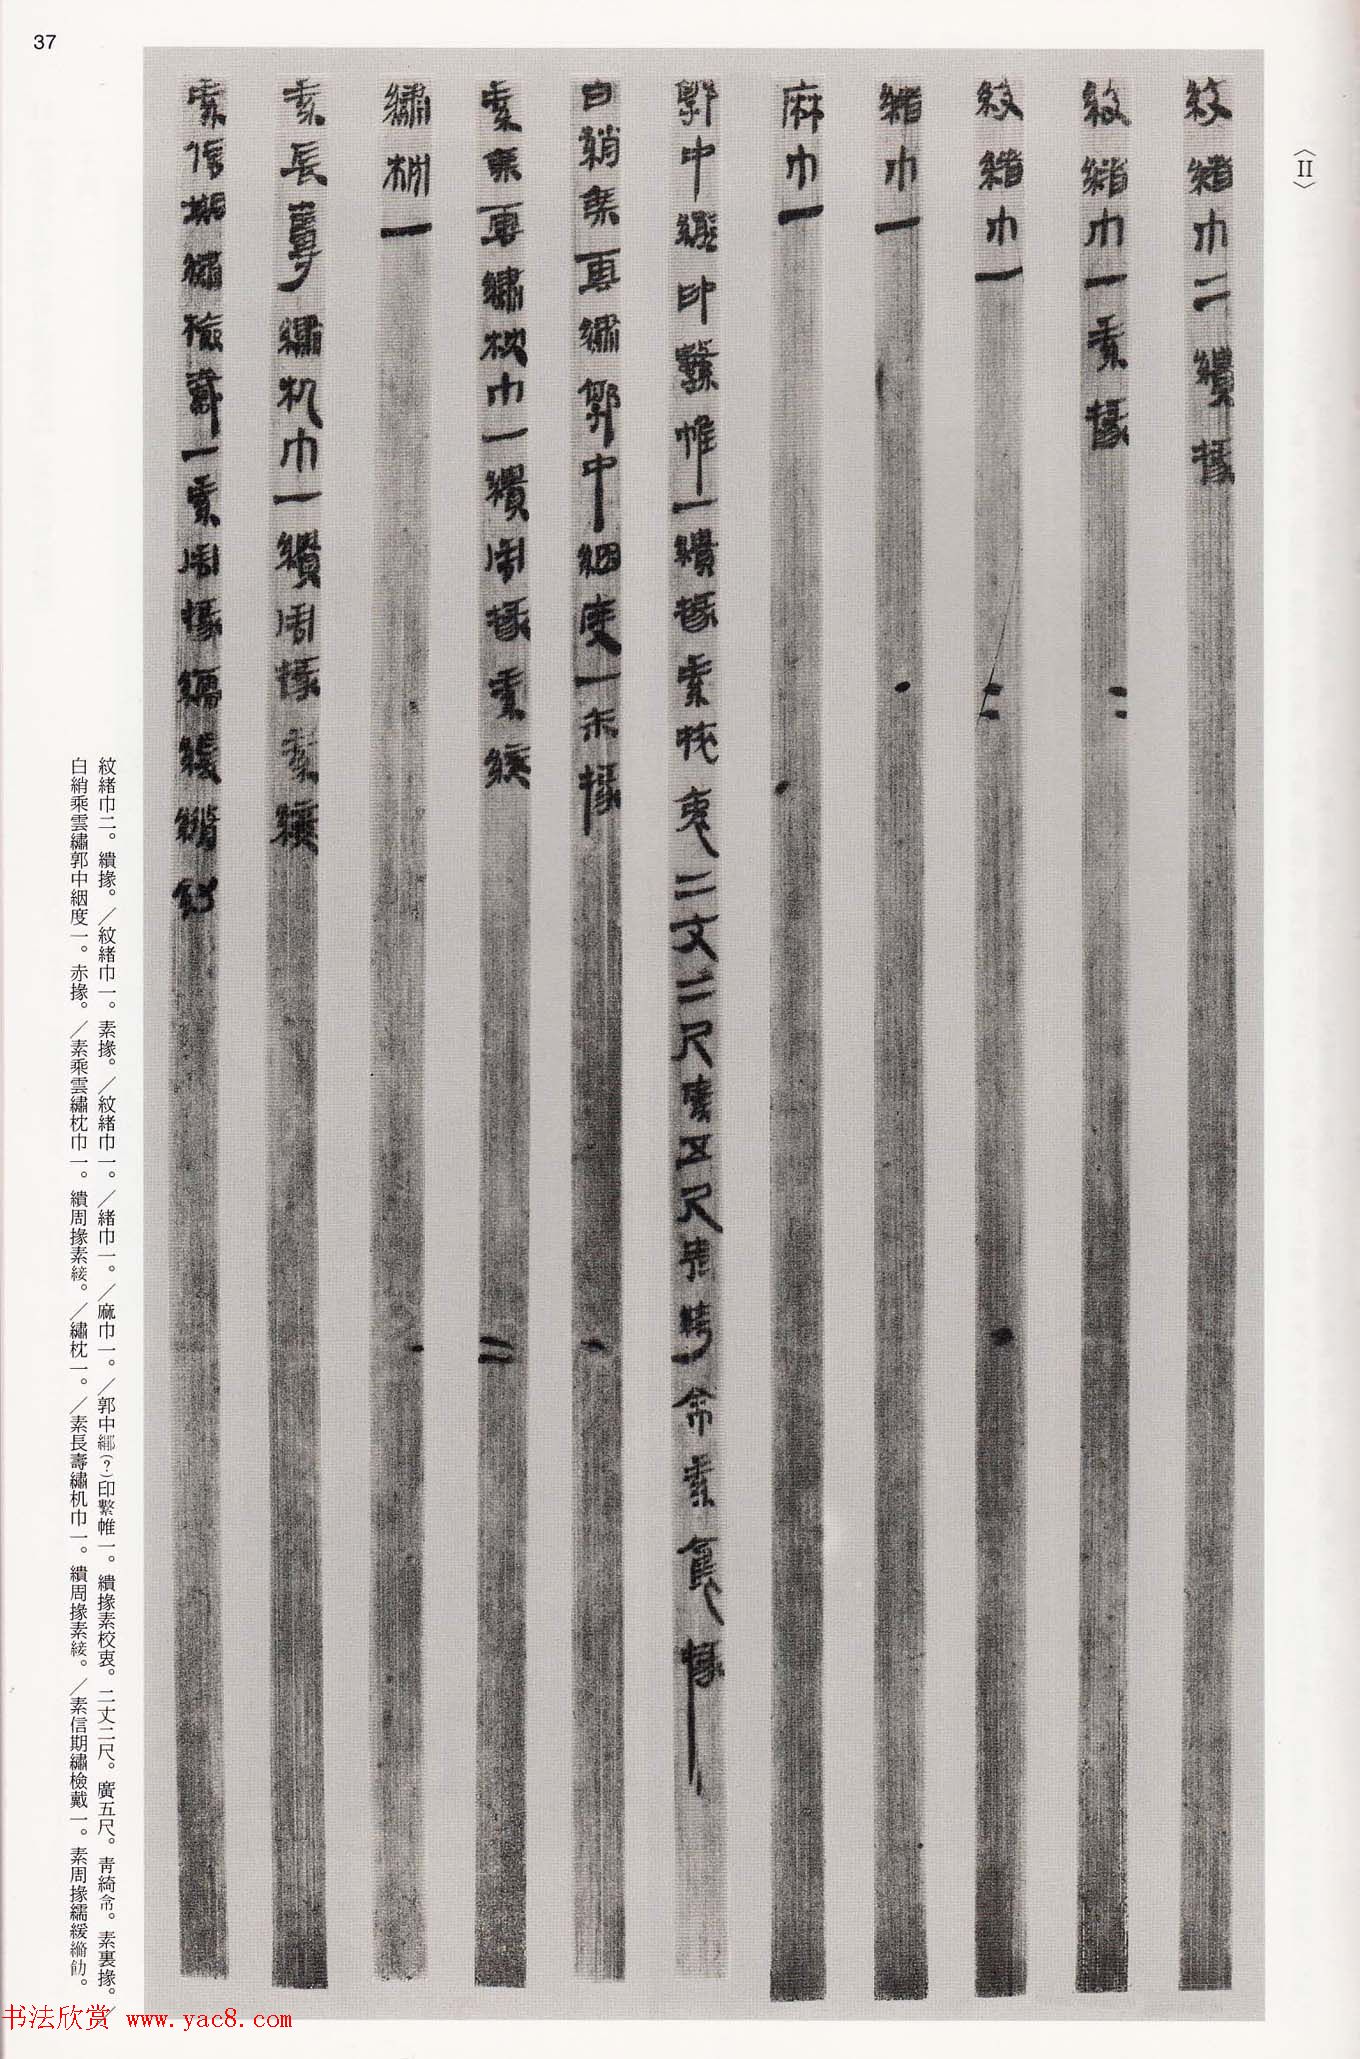 37
〈II〉
紋緒巾二繢掾
紋緒巾一素掾
紋緒巾一
緒巾一
麻巾一
郭中印繫帷一繢掾素校衷二丈二尺廣五尺青綺素裏掾
白綃乘雲繡郭中絪度一赤掾
素乘雲繡枕巾一繢周掾素
繡枕一
素長壽繡机巾一繢周掾素
素信期繡檢戴一素周掾繻緩
紋緒巾二。繢掾。／紋緒巾一。素掾。／紋緒巾一。／緒巾一。／麻巾一。／郭中(?)印繫帷一。繢掾素校衷。二丈二尺。廣五尺。青綺。素裏掾。／
白綃乘雲繡郭中絪度一。赤掾。／素乘雲繡枕巾一。繢周掾素。／繡枕一。／素長壽繡机巾一。繢周掾素。／素信期繡檢戴一。素周掾繻緩。
书法欣赏 www.yac8.com